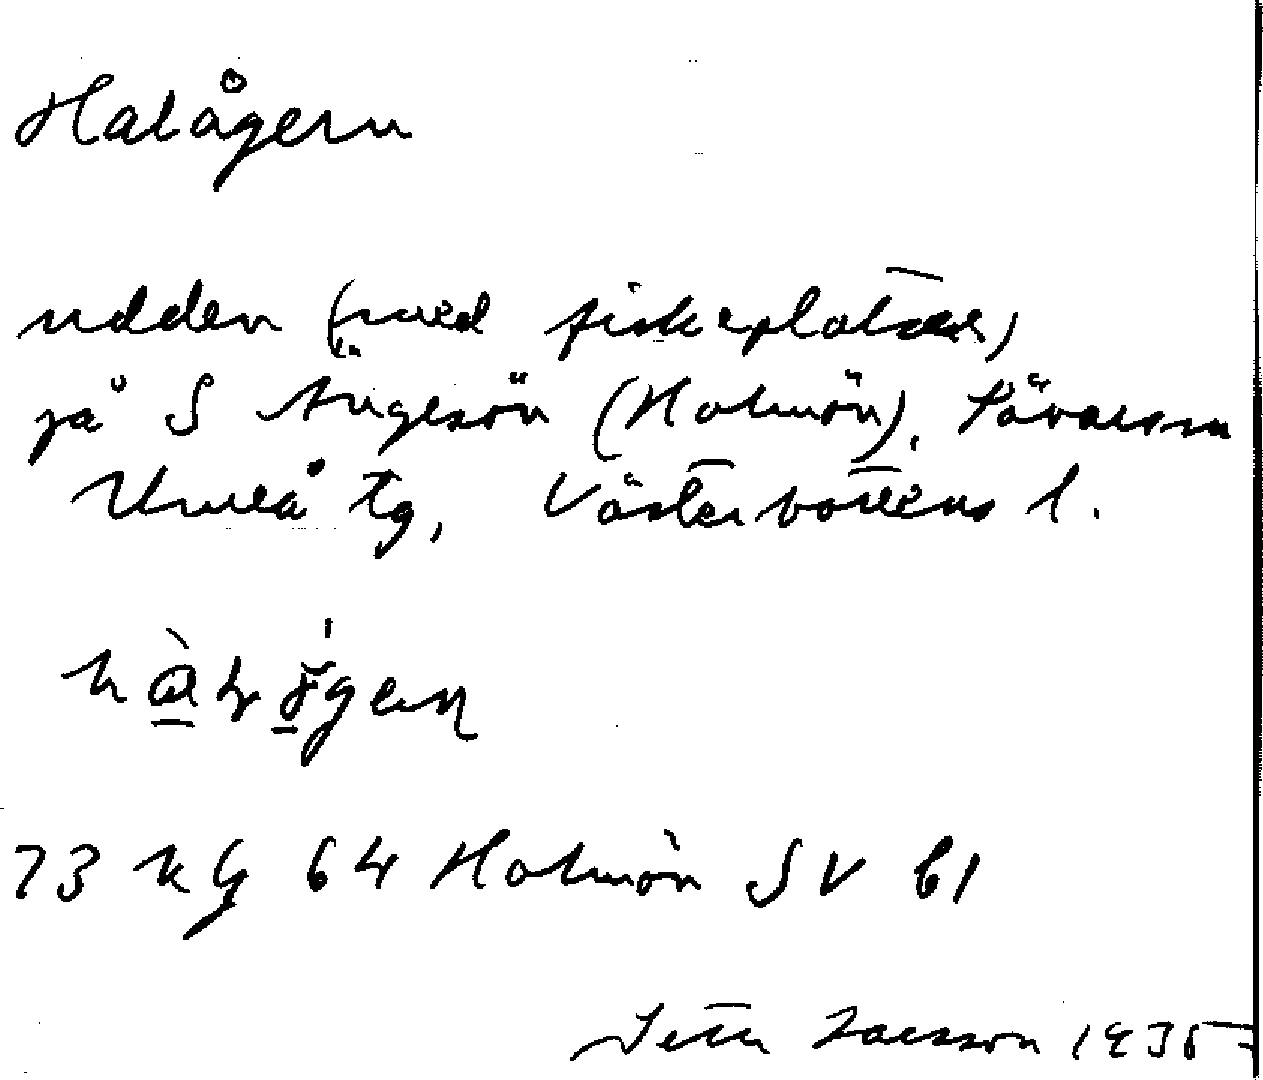 Halågern
udden (med fiskeplatser)
på S Ängesön (Holmön), Sävar sn
Umeå tg, Västerbottens l.
73 kg 64 Holmön SV bl
Larsson 1935